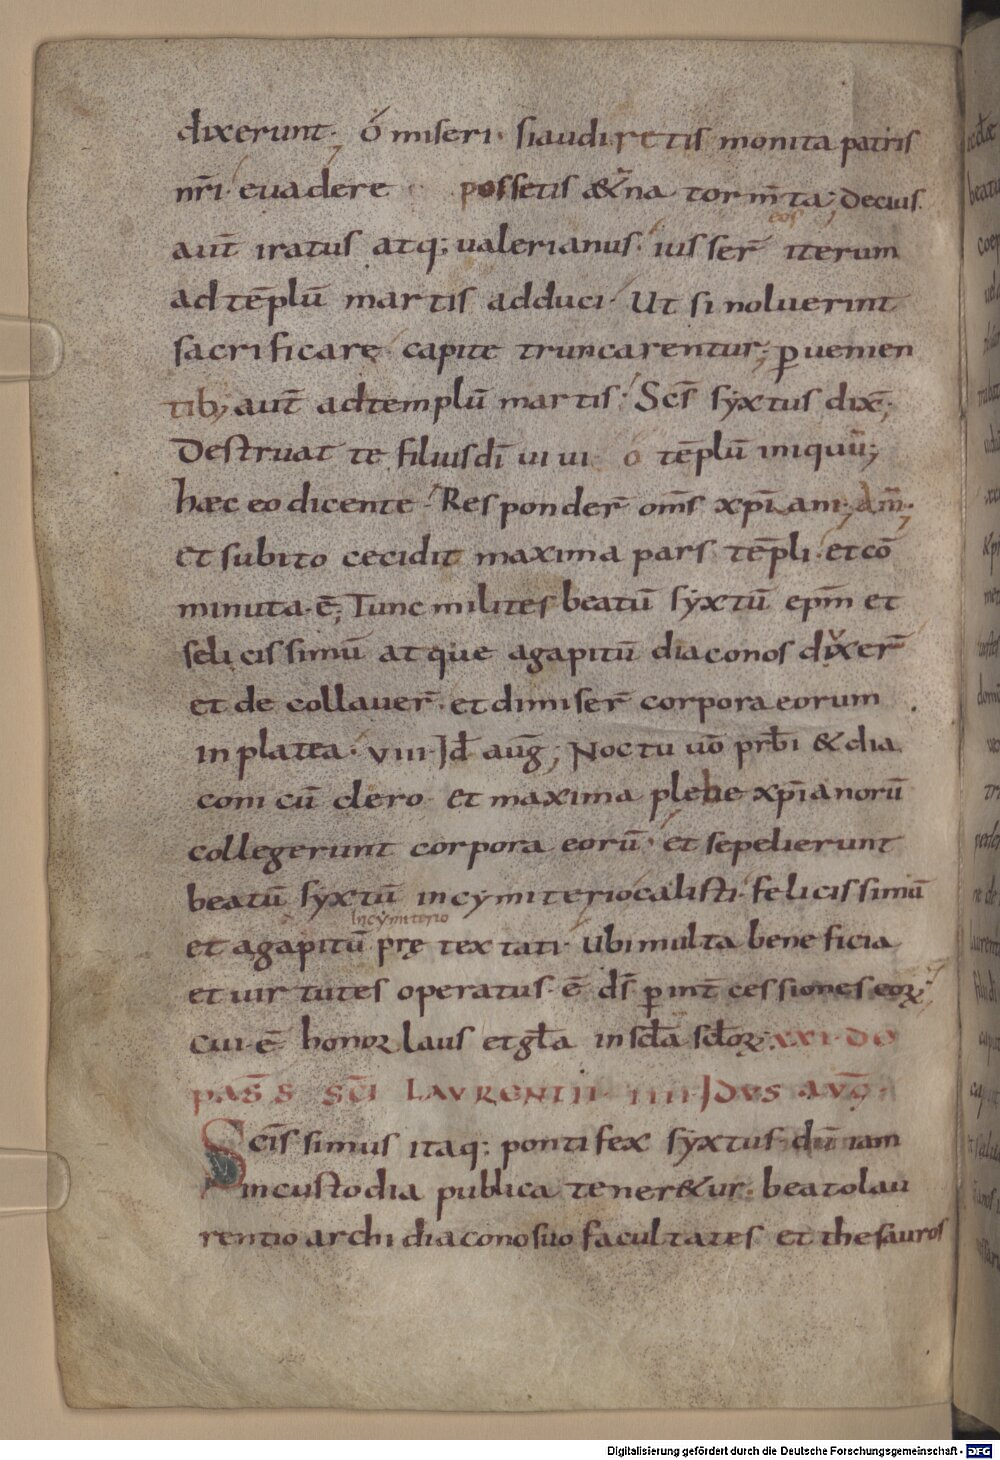 dixerunt. ó miseri. si audiretis monita patris
nr̄i. euadere possetis æt̄na torm̄ta; Decius
aut̄ iratus atq; ualerianus. iusser̄ eos iterum
ad tēplū martis adduci. Ut si noluerint
sacrificarę capite truncarentur; ꝑuenien
tib; aut̄ ad templū martis. Sc̄s syxtus dix̄;
Destruat te filius dī uiui ó tēplū iniquū;
hæc eo dicente. Responder̄ om̄s xp̄iani; am̄;
et subito cecidit maxima pars tēpli. et cō
minuta. ē; Tunc milites beatū syxtū ep̄m et
felicissimū atque agapitū diaconos dixer̄
et decollauer̄. et dimiser̄ corpora eorum
in platea. VIII. Id̄ auḡ; Noctu uō prb̄i & dia
coni cū clero et maxima plebe xp̄ianorū
collegerunt corpora eorū. et sepelierunt
beatū syxtū in cymiterio calisti. felicissimū
in cymiterio
et agapitū prę textati. Ubi multa beneficia
et uirtutes operatus. ē ds̄ ꝑ int̄cessiones eoꝝ;
cui. ē honor laus et gl̄a in scl̄a scl̄oꝝ; XXI. DE
PAS̄S SC̄I LAURENTII IIII. IDUS AUG̅.
Scīssimus itaq; pontifex syxtus. dū iam
in custodia publica tener&ur. beato lau
rentio archidiacono suo facultates et thesauros
Digitalisierung gefördert durch die Deutsche Forschungsgemeinschaft - DFG